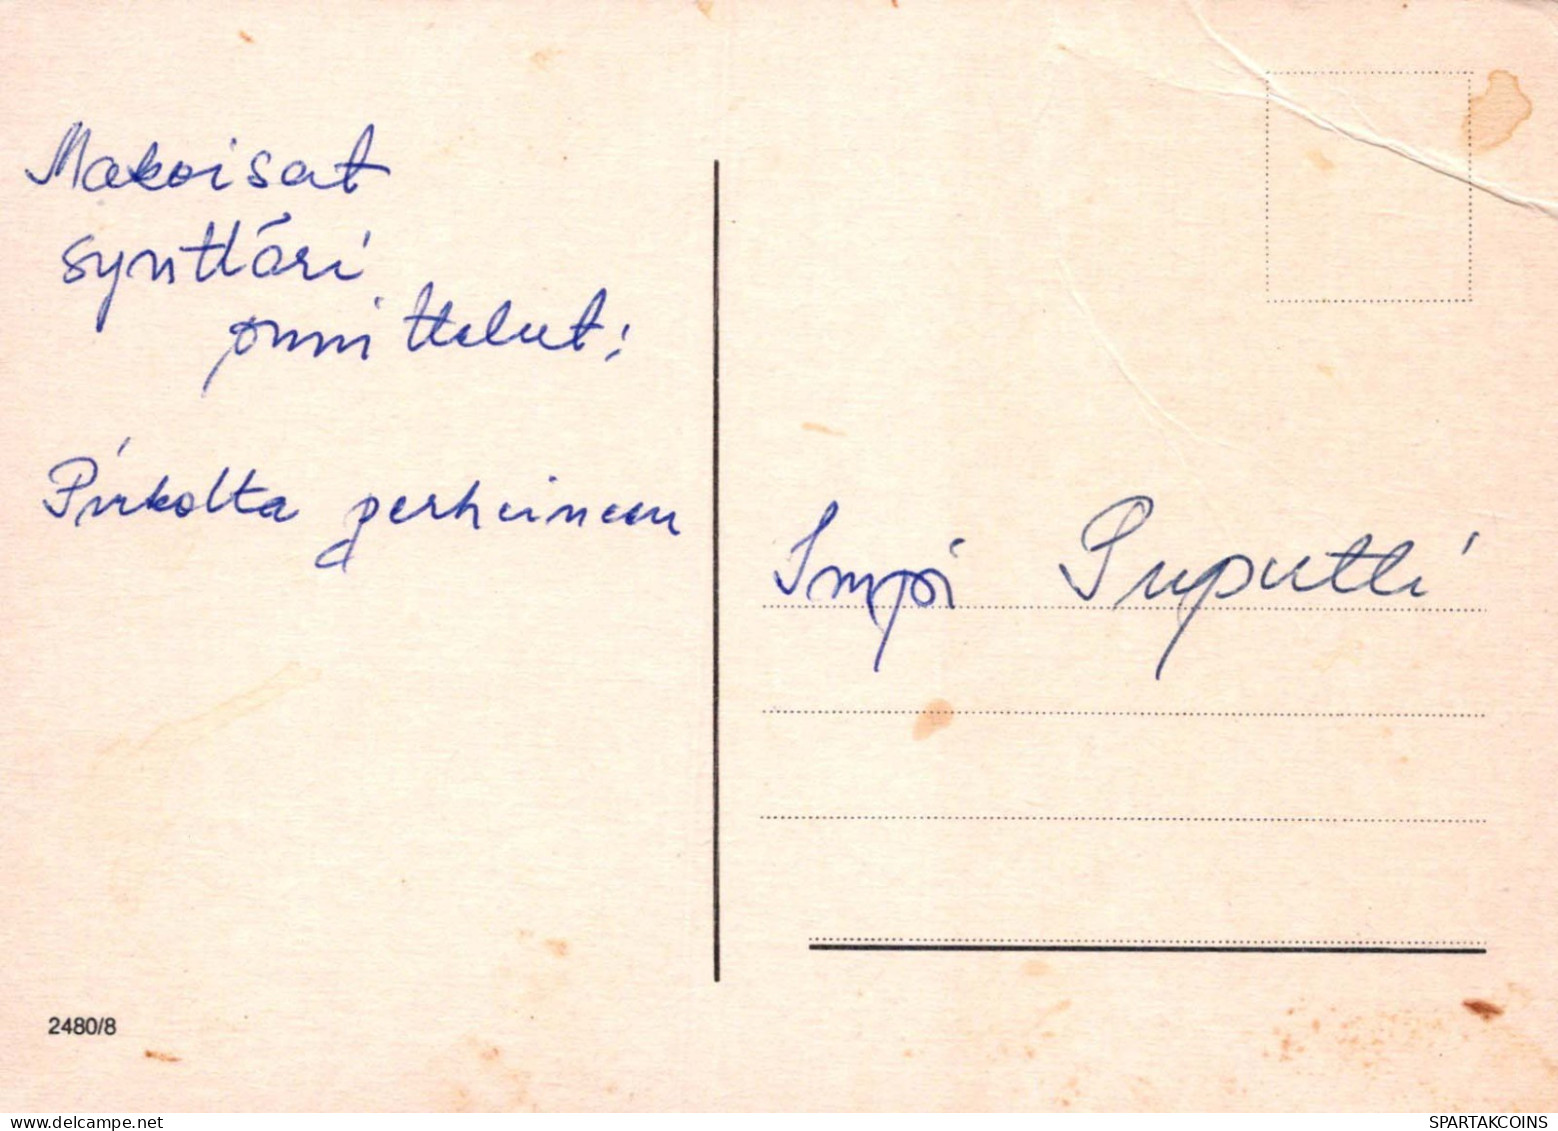 Makoisat
synttäri
onnittelut!
Pirkolta perheineen
Impi Puputti
2480/8
delcampe.net
SPARTAKCOINS